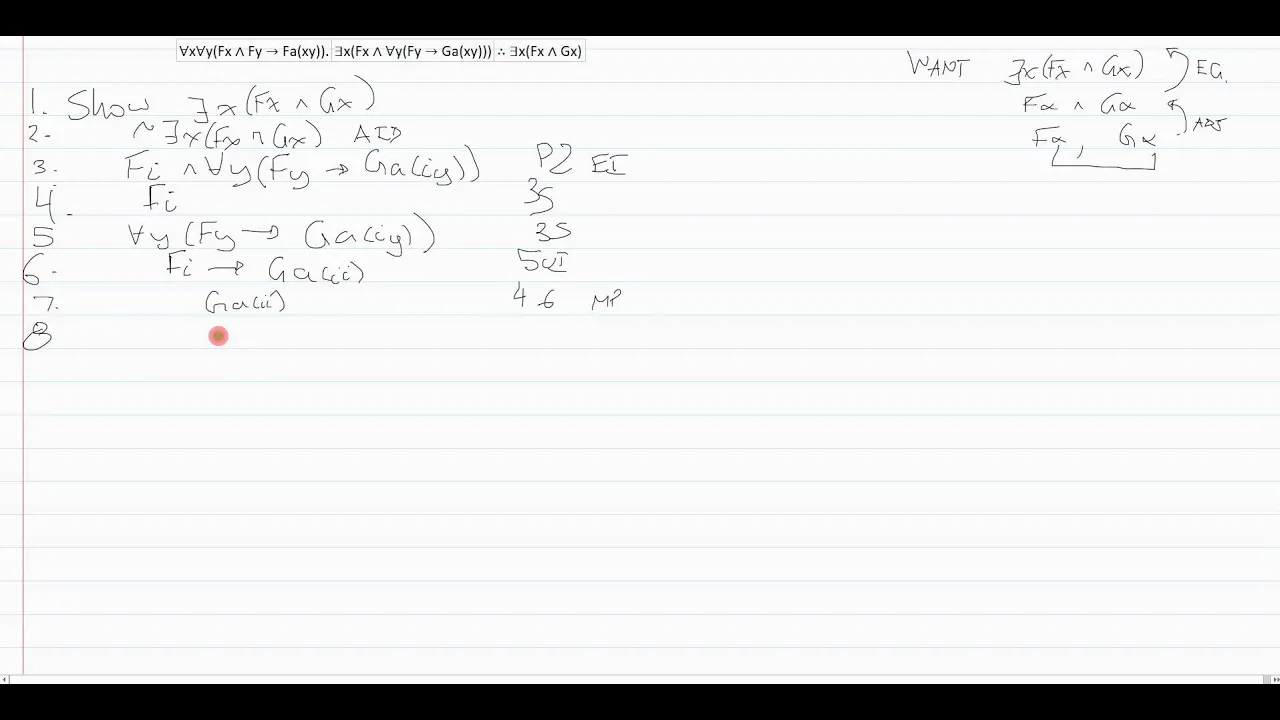 ∀x∀y(Fx ∧ Fy → Fa(xy)). ∃x(Fx ∧ ∀y(Fy → Ga(xy))) ∴ ∃x(Fx ∧ Gx)
WANT ∃x(Fx ∧ Gx) EG.
Fα ∧ Gα
ADJ
Fα , Gα
1. Show ∃x(Fx ∧ Gx)
2. ~∃x(Fx ∧ Gx) AID
3. Fi ∧ ∀y(Fy → Ga(iy)) P2 EI
4. Fi 3S
5 ∀y(Fy → Ga(iy)) 3S
6. Fi → Ga(ii) 5UI
7. Ga(ii) 4 6 MP
8